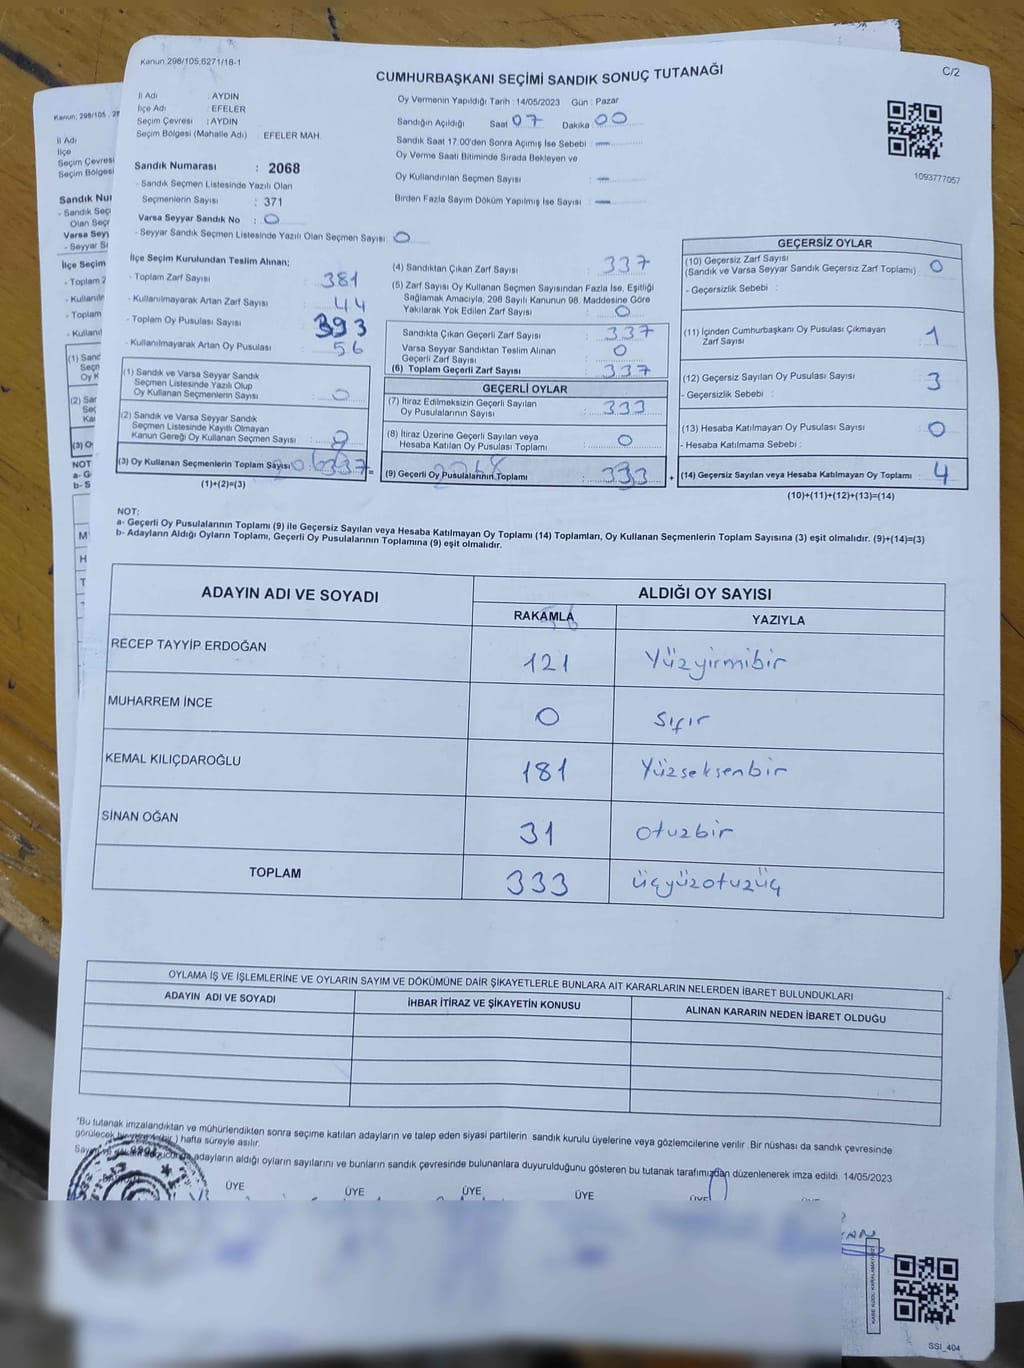 Kanun:298/105,6271/18-1
C/2
CUMHURBAŞKANI SEÇİMİ SANDIK SONUÇ TUTANAĞI
İl Adı : AYDIN
İlçe Adı : EFELER
Seçim Çevresi : AYDIN
Seçim Bölgesi (Mahalle Adı) : EFELER MAH.
Sandık Numarası : 2068
- Sandık Seçmen Listesinde Yazılı Olan
Seçmenlerin Sayısı : 371
Varsa Seyyar Sandık No : 0
- Seyyar Sandık Seçmen Listesinde Yazılı Olan Seçmen Sayısı: 0
Oy Vermenin Yapıldığı Tarih : 14/05/2023 Gün : Pazar
Sandığın Açıldığı Saat 07 Dakika 00
Sandık Saat 17:00'den Sonra Açımış İse Sebebi : —
Oy Verme Saati Bitiminde Sırada Bekleyen ve
Oy Kullandırılan Seçmen Sayısı : —
Birden Fazla Sayım Döküm Yapılmış İse Sayısı : —
1093777057
İlçe Seçim Kurulundan Teslim Alınan;
- Toplam Zarf Sayısı : 381
- Kullanılmayarak Artan Zarf Sayısı : 44
- Toplam Oy Pusulası Sayısı : 393
- Kullanılmayarak Artan Oy Pusulası : 56
(1) Sandık ve Varsa Seyyar Sandık
Seçmen Listesinde Yazılı Olup
Oy Kullanan Seçmenlerin Sayısı : 0
(2) Sandık ve Varsa Seyyar Sandık
Seçmen Listesinde Kayıtlı Olmayan
Kanun Gereği Oy Kullanan Seçmen Sayısı :
(3) Oy Kullanan Seçmenlerin Toplam Sayısı : 337
(1)+(2)=(3)
(4) Sandıktan Çıkan Zarf Sayısı : 337
(5) Zarf Sayısı Oy Kullanan Seçmen Sayısından Fazla İse, Eşitliği
Sağlamak Amacıyla, 298 Sayılı Kanunun 98. Maddesine Göre
Yakılarak Yok Edilen Zarf Sayısı : 0
Sandıkta Çıkan Geçerli Zarf Sayısı : 337
Varsa Seyyar Sandıktan Teslim Alınan
Geçerli Zarf Sayısı : 0
(6) Toplam Geçerli Zarf Sayısı : 337
GEÇERLİ OYLAR
(7) İtiraz Edilmeksizin Geçerli Sayılan
Oy Pusulalarının Sayısı : 333
(8) İtiraz Üzerine Geçerli Sayılan veya
Hesaba Katılan Oy Pusulası Toplamı : 0
(9) Geçerli Oy Pusulalarının Toplamı : 333
GEÇERSİZ OYLAR
(10) Geçersiz Zarf Sayısı
(Sandık ve Varsa Seyyar Sandık Geçersiz Zarf Toplamı) : 0
- Geçersizlik Sebebi :
(11) İçinden Cumhurbaşkanı Oy Pusulası Çıkmayan
Zarf Sayısı : 1
(12) Geçersiz Sayılan Oy Pusulası Sayısı : 3
- Geçersizlik Sebebi :
(13) Hesaba Katılmayan Oy Pusulası Sayısı : 0
- Hesaba Katılmama Sebebi :
+ (14) Geçersiz Sayılan veya Hesaba Katılmayan Oy Toplamı : 4
(10)+(11)+(12)+(13)=(14)
NOT:
a- Geçerli Oy Pusulalarının Toplamı (9) ile Geçersiz Sayılan veya Hesaba Katılmayan Oy Toplamı (14) Toplamları, Oy Kullanan Seçmenlerin Toplam Sayısına (3) eşit olmalıdır. (9)+(14)=(3)
b- Adayların Aldığı Oyların Toplamı, Geçerli Oy Pusulalarının Toplamına (9) eşit olmalıdır.
ADAYIN ADI VE SOYADI ALDIĞI OY SAYISI
RAKAMLA YAZIYLA
RECEP TAYYİP ERDOĞAN 121 Yüzyirmibir
MUHARREM İNCE 0 Sıfır
KEMAL KILIÇDAROĞLU 181 Yüzseksenbir
SİNAN OĞAN 31 otuzbir
TOPLAM 333 üçyüzotuzüç
OYLAMA İŞ VE İŞLEMLERİNE VE OYLARIN SAYIM VE DÖKÜMÜNE DAİR ŞİKAYETLERLE BUNLARA AİT KARARLARIN NELERDEN İBARET BULUNDUKLARI
ADAYIN ADI VE SOYADI İHBAR İTİRAZ VE ŞİKAYETİN KONUSU ALINAN KARARIN NEDEN İBARET OLDUĞU
*Bu tutanak imzalandıktan ve mühürlendikten sonra seçime katılan adayların ve talep eden siyasi partilerin sandık kurulu üyelerine veya gözlemcilerine verilir. Bir nüshası da sandık çevresinde
görülecek bir hafta süreyle asılır.
adayların aldığı oyların sayılarını ve bunların sandık çevresinde bulunanlara duyurulduğunu gösteren bu tutanak tarafımızdan düzenlenerek imza edildi. 14/05/2023
ÜYE ÜYE ÜYE ÜYE ÜYE
SSI_404